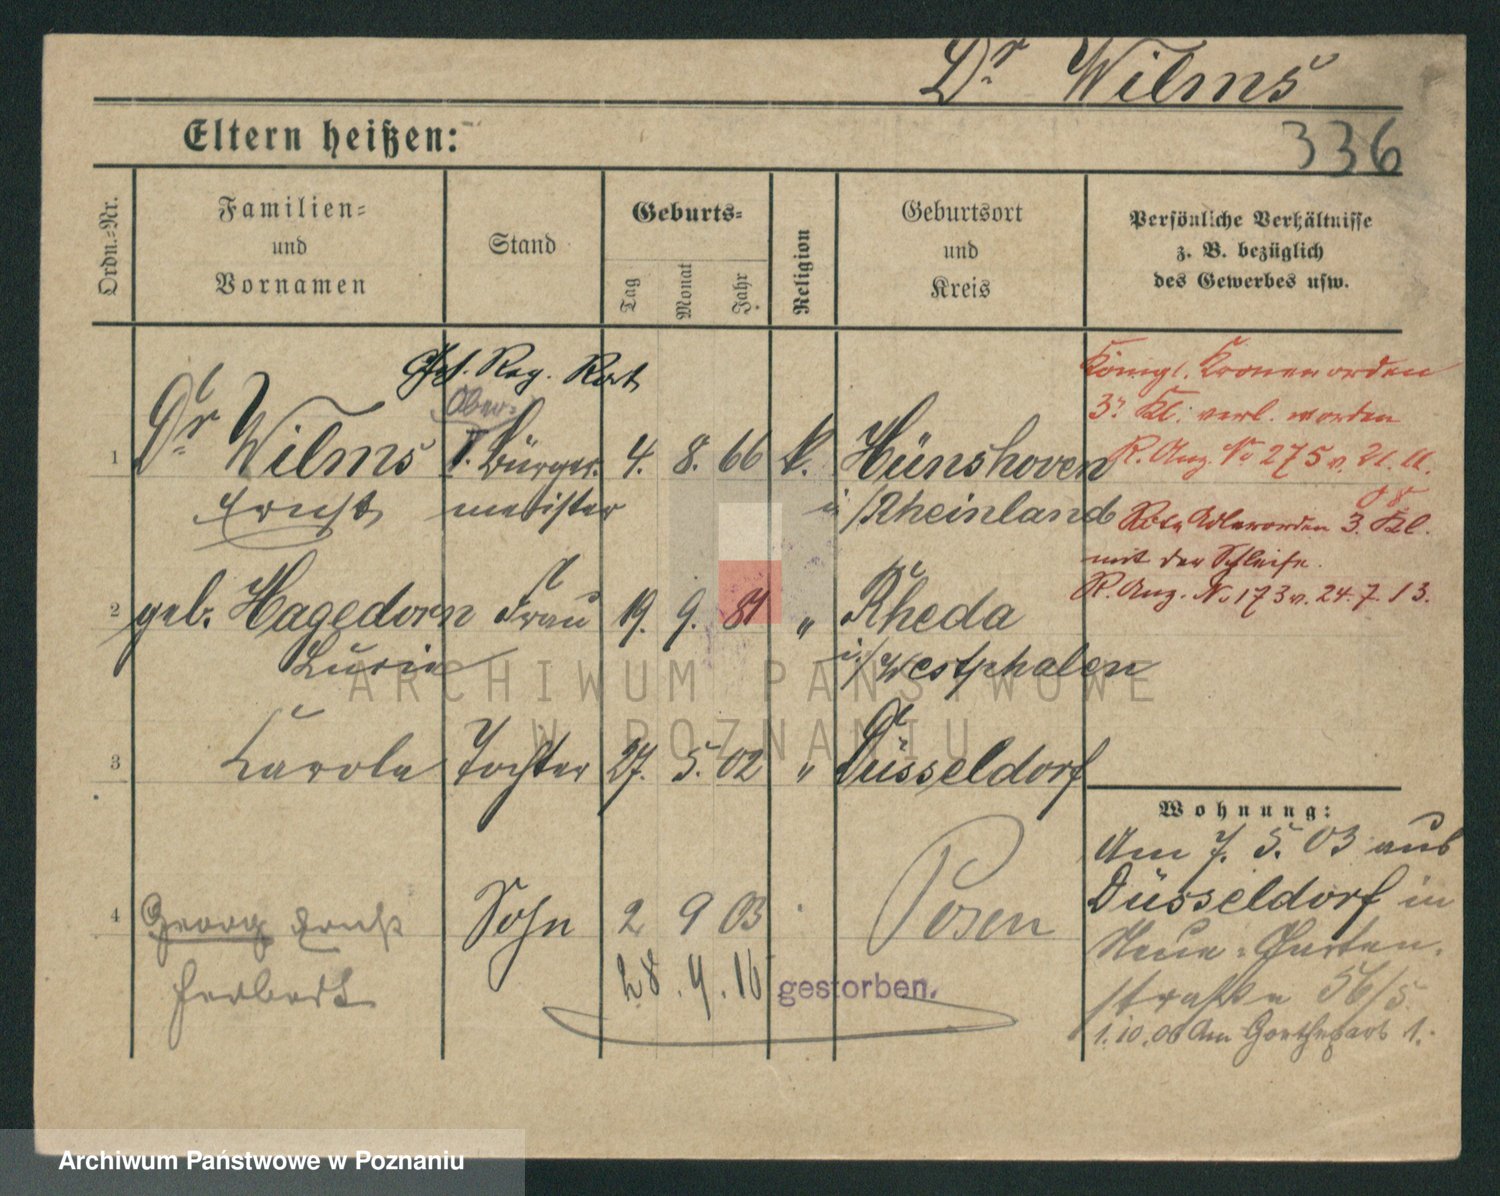 Dr Wilms
Eltern heißen:
336
Ordn.-Nr.
Familien- und Vornamen
Stand
Geburts-
Tag
Monat
Jahr
Religion
Geburtsort und Kreis
Persönliche Verhältnisse
z. B. bezüglich
des Gewerbes usw.
Geh. Reg. Rat
Ober-
1 Dr Wilms I. Bürger- 4. 8. 66 k. Hünshoven
Ernst meister i/Rheinland
2 geb. Hagedorn Frau 19. 9. 81 " Rheda
Luzie i/Westphalen
3 Carola Tochter 27. 5. 02 " Düsseldorf
4 Georg Ernst Sohn 2 9 03 Posen
Herbert 28. 9. 16 gestorben.
Königl. Kronenorden
3r Kl. verl. worden
R. Anz. No 275 v. 21. 11.
08
Rote Adlerorden 3. Kl.
mit der Schleife.
R. Anz. No 173 v. 24. 7. 13.
Wohnung:
Am 7. 5. 03 aus
Düsseldorf in
Neue-Garten-
straße 56/5
1.10.06 Am Goethepark 1.
ARCHIWUM PAŃSTWOWE
W POZNANIU
Archiwum Państwowe w Poznaniu